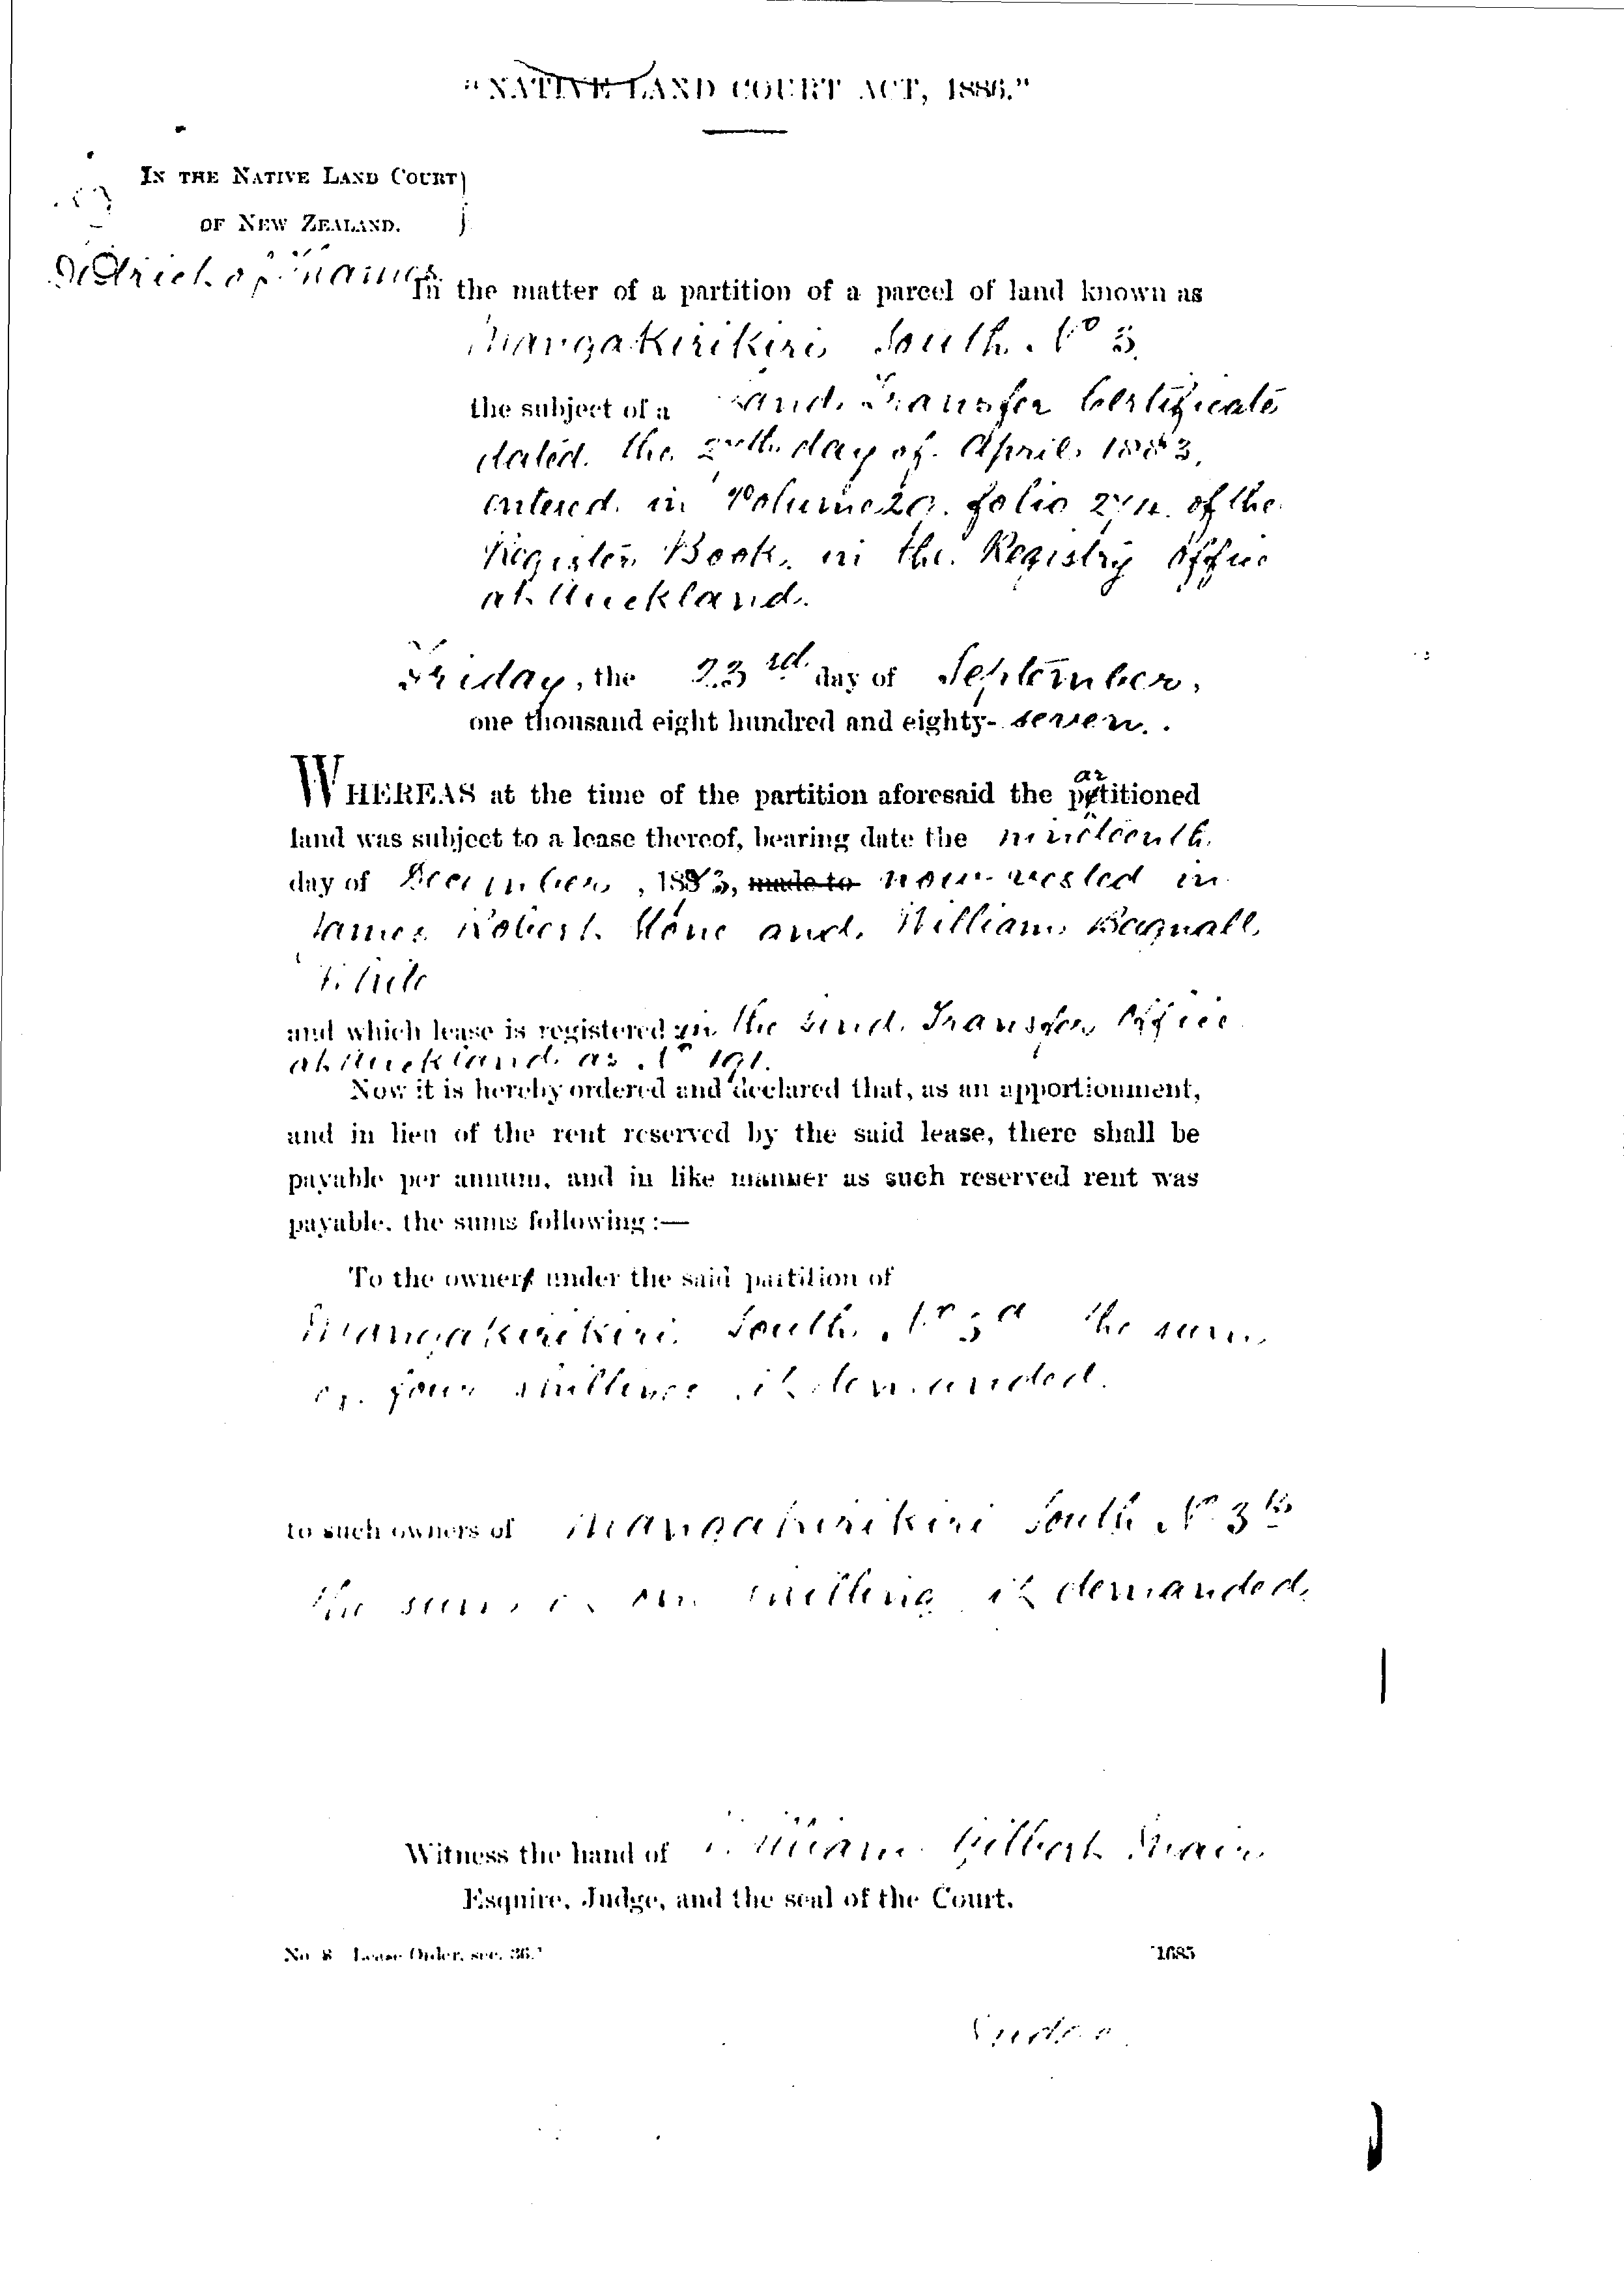 "NATIVE LAND COURT ACT, 1886."
IN THE NATIVE LAND COURT
OF NEW ZEALAND.
District of Thames
In the matter of a partition of a parcel of land known as
Mangakirikiri South No 3
the subject of a Land Transfer Certificate
dated the day of April 1883,
entered in Volume folio of the
Register Book in the Registry Office
at Auckland.
Friday, the 23rd day of September,
one thousand eight hundred and eighty-seven.
WHEREAS at the time of the partition aforesaid the partitioned
land was subject to a lease thereof, bearing date the nineteenth
day of December, 1883, made to now vested in
James Robert Hone and William Bagnall
White
and which lease is registered in the Land Transfer Office
at Auckland as No 191.
Now it is hereby ordered and declared that, as an apportionment,
and in lieu of the rent reserved by the said lease, there shall be
payable per annum, and in like manner as such reserved rent was
payable, the sums following:—
To the owner under the said partition of
Mangakirikiri South No 3a the sum
of four shillings if demanded.
to such owners of Mangakirikiri South No 3b
the sum of one shilling if demanded.
Witness the hand of William Gilbert Mair
Esquire, Judge, and the seal of the Court.
No 8 Lease Order, sec. 36.
1685
Judge